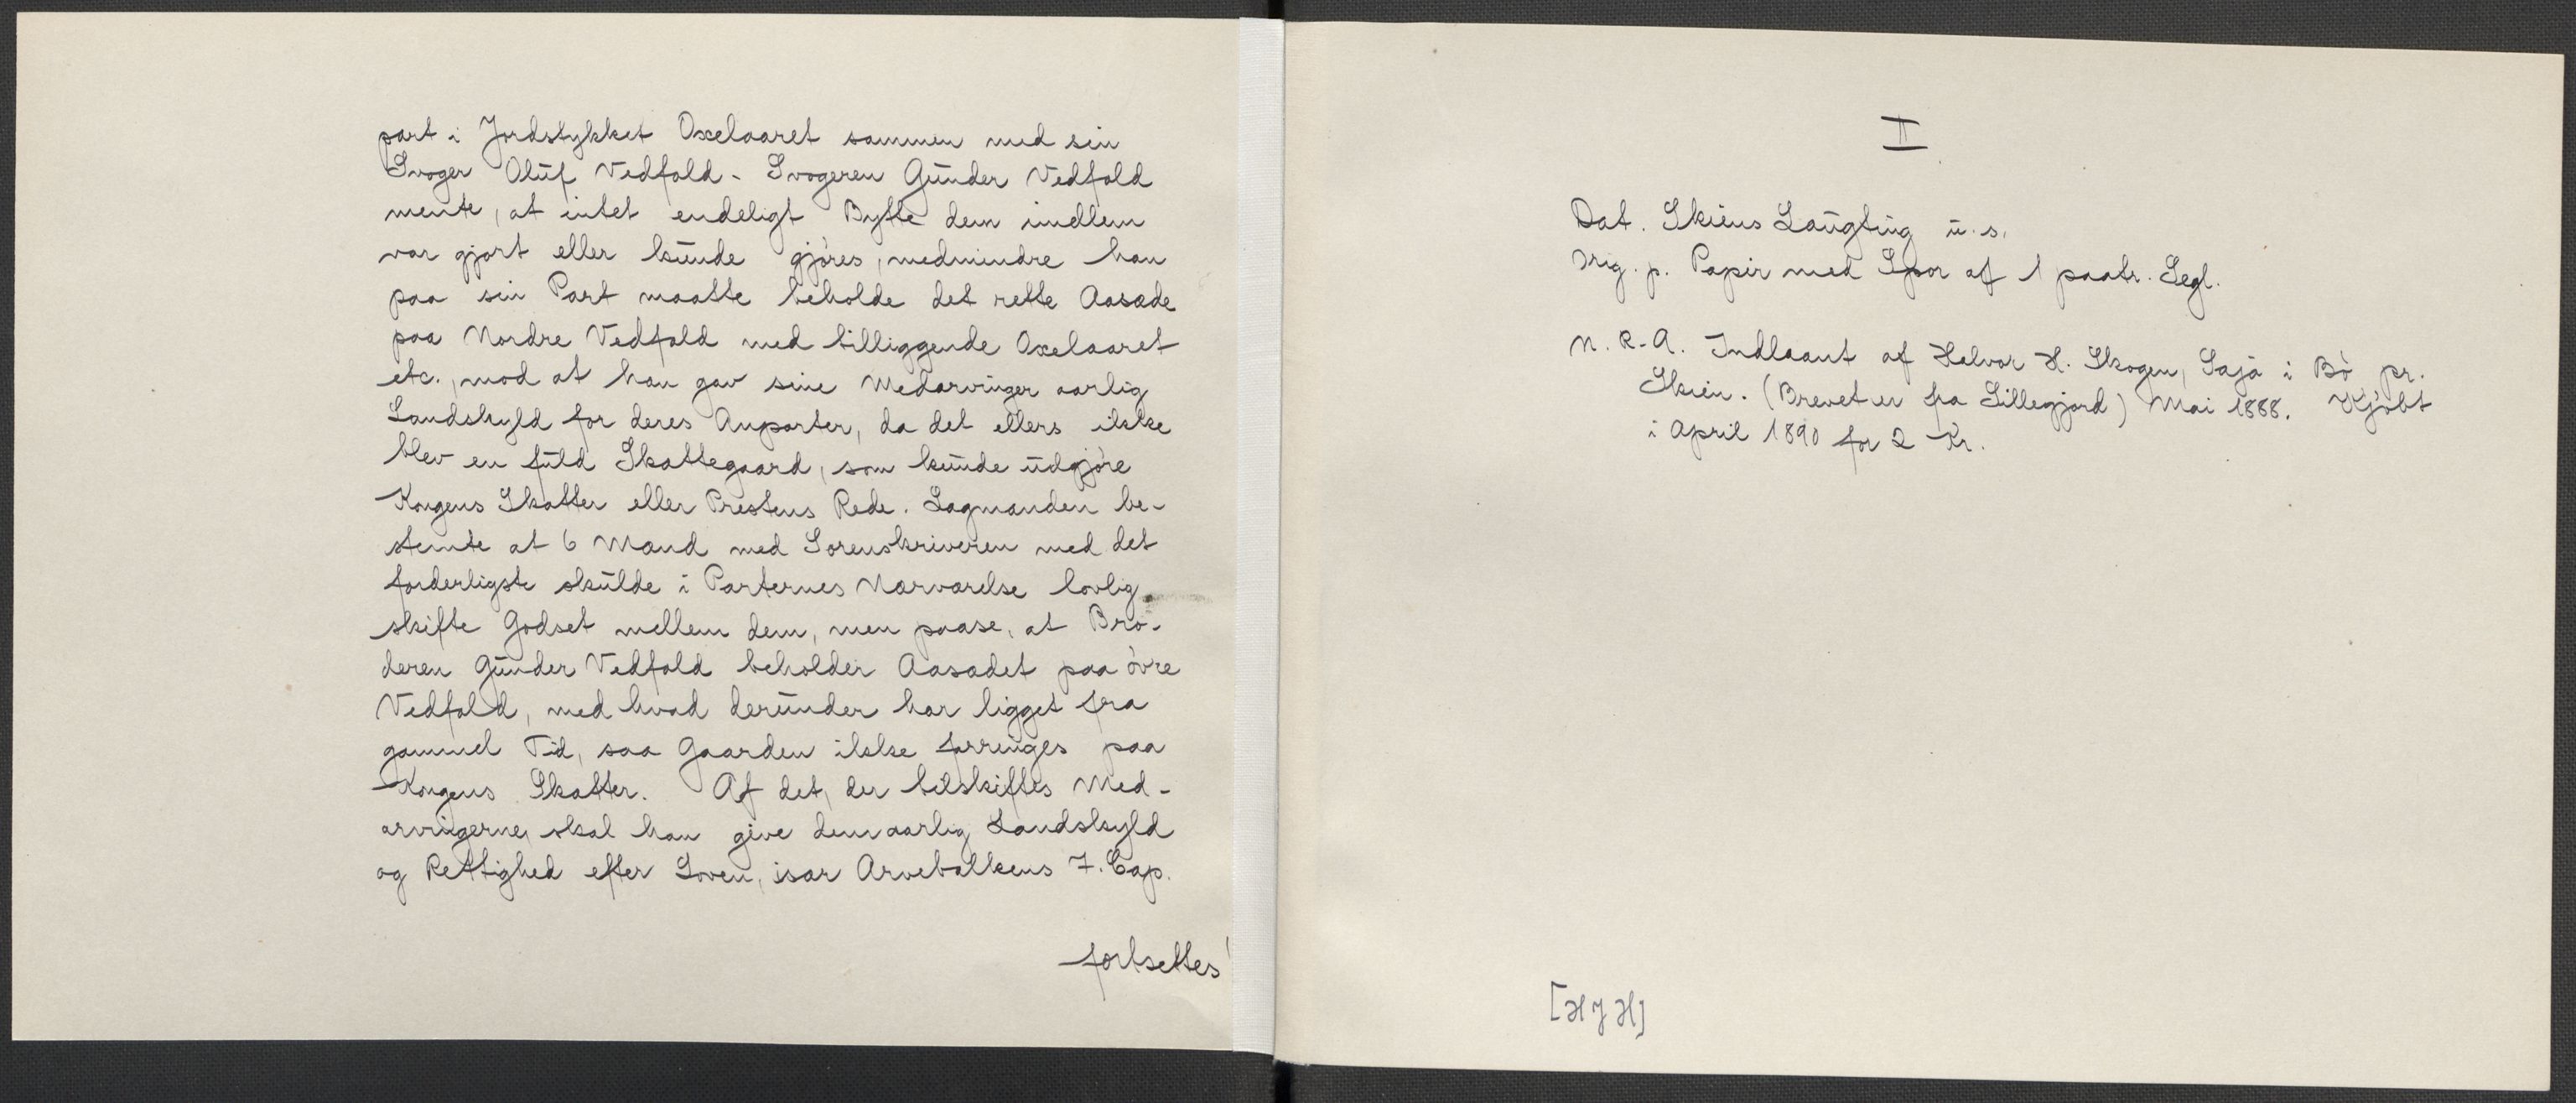 part i Jordstykket Oxelaaret sammen med sin
Svoger Oluf Vedfald - Svogeren Gunder Vedfald
mente, at intet endeligt Bytte dem imellem
var gjort eller kunde gjøres, medmindre han
paa sin Part maatte beholde det rette Aasæde
paa Nordre Vedfald med tilliggende Oxelaaret
etc., mod at han gav sine Medarvinger aarlig
Landskyld for deres Anparter, da det ellers ikke
blev en fuld Skattegaard, som kunde udgjøre
Kongens Skatter eller Prestens Rede. Lagmanden be-
stemte at 6 Mand med Sorenskriveren med det
forderligste skulde i Parternes Nærværelse lovlig
skifte Godset mellem dem, men paase, at Brø-
deren Gunder Vedfald beholder Aasædet paa øvre
Vedfald, med hvad derunder har ligget fra
gammel Tid, saa Gaarden ikke forringes paa
Kongens Skatter. Af det, der tilskiftes Med-
arvingerne, skal han give dem aarlig Landskyld
og Rettighed efter Loven, især Arvebalkens 7. Cap.
fortsettes
II
Dat. Skiens Laugting u. s.
Orig. p. Papir med Spor af 1 paatr. Segl.
N. R.-A. Indlaant af Halvor H. Skogen, Sajà i Bø pr.
Skien. (Brevet er fra Sillegjord) Mai 1888. Kjøbt
i April 1890 for 2 Kr.
[HJH]